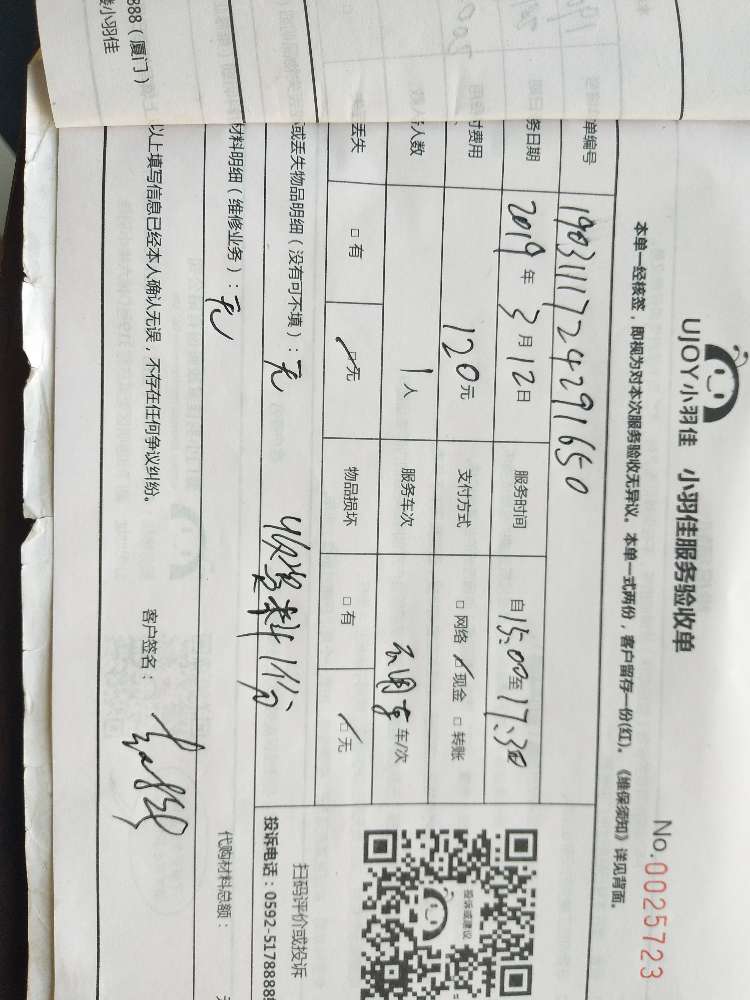 UJOY小羽佳 小羽佳服务验收单
No.0025723
本单一经核签，即视为对本次服务验收无异议。本单一式两份，客户留存一份(红)。《维保须知》详见背面。
单编号 1903111724291650
务日期 2019年3月12日 服务时间 自15:00至17:30
付费用 120元 支付方式 □网络 ☑现金 □转账
人数 1人 服务车次 车/次
丢失 □有 ☑无 物品损坏 □有 ☑无
或丢失物品明细（没有可不填）：无
料1份
材料明细（维修业务）：无
代购材料总额：
投诉或建议
扫码评价或投诉
投诉电话：0592-5178888
以上填写信息已经本人确认无误，不存在任何争议纠纷。 客户签名：
888（厦门）
小羽佳